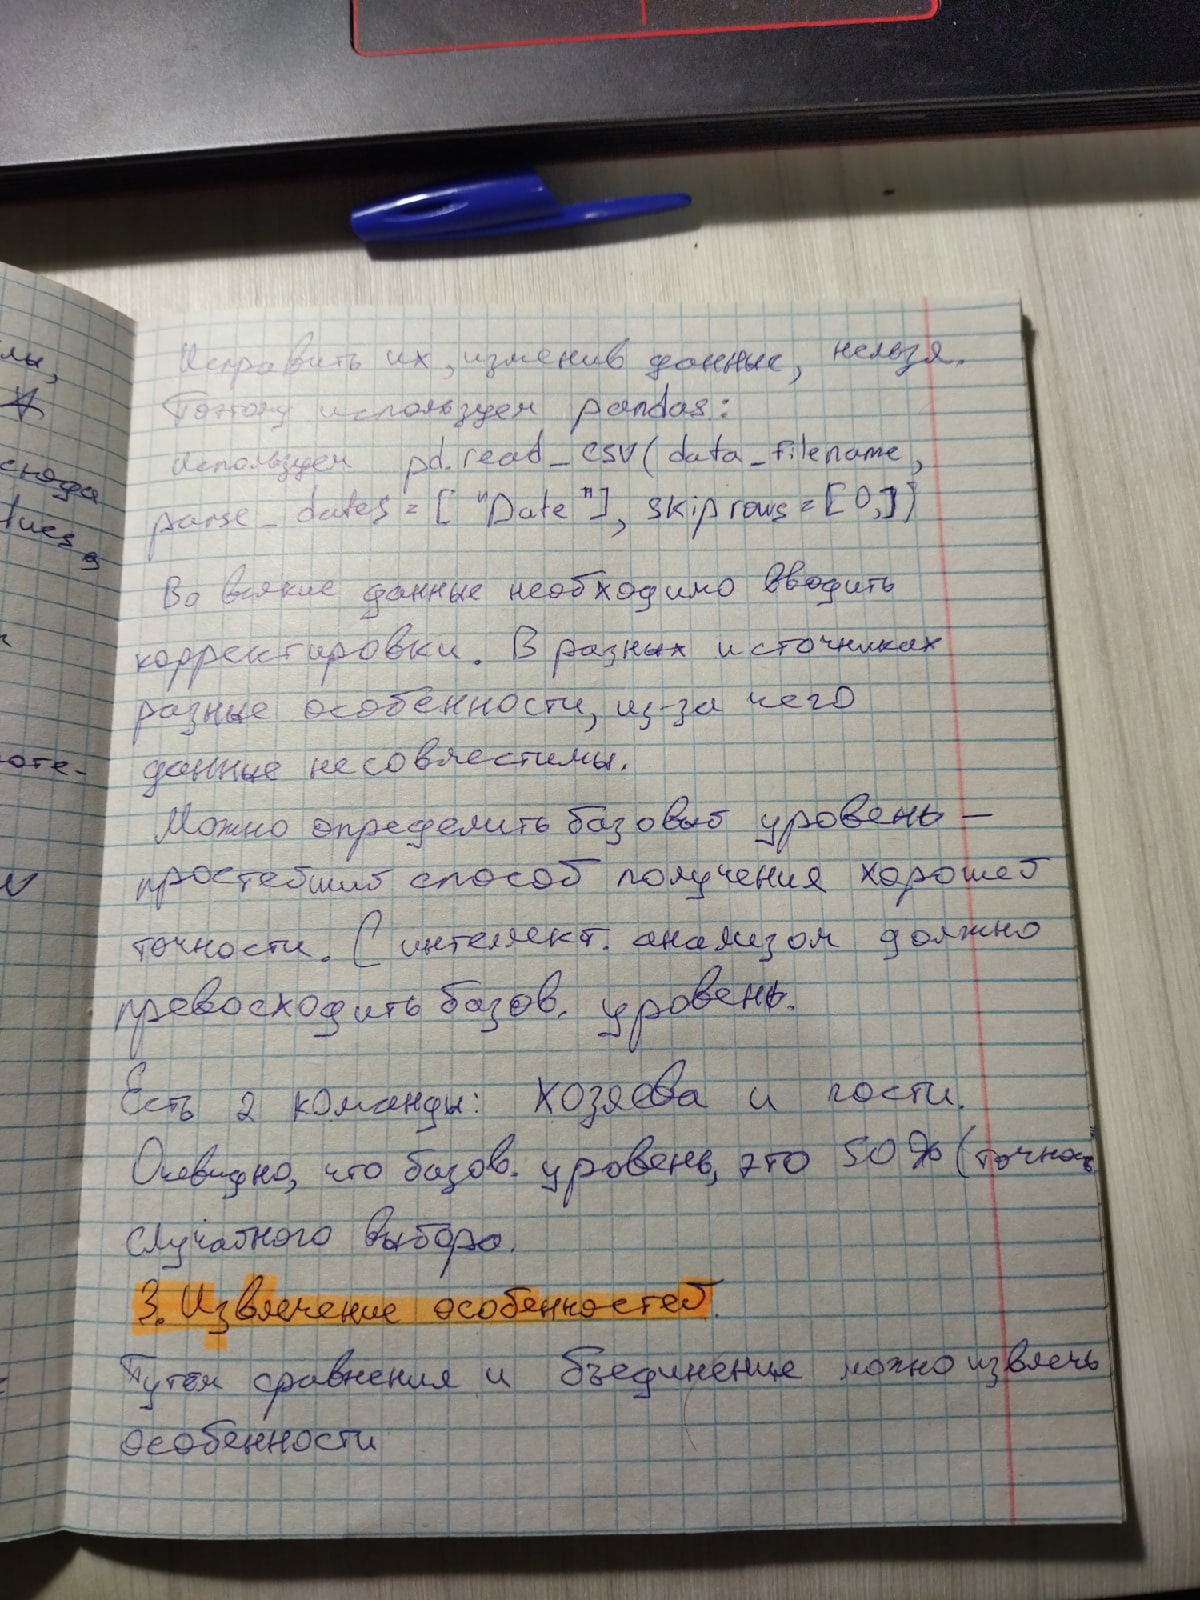 лы,
сюда
оте-
Исправить их, изменив данные, нельзя.
Поэтому используем pandas:
Используем pd.read_csv(data_filename,
parse_dates=["Date"], skiprows=[0,])
Во всякие данные необходимо вводить
корректировки. В разных источниках
разные особенности, из-за чего
данные несовместимы.
Можно определить базовый уровень –
простейший способ получения хорошей
точности. (интеллект. анализом должно
превосходить базов. уровень.
Есть 2 команды: хозяева и гости.
Очевидно, что базов. уровень, это 50% (точность
случайного выбора.
3. Извлечение особенностей.
Путем сравнения и бъединение можно извлечь
особенности